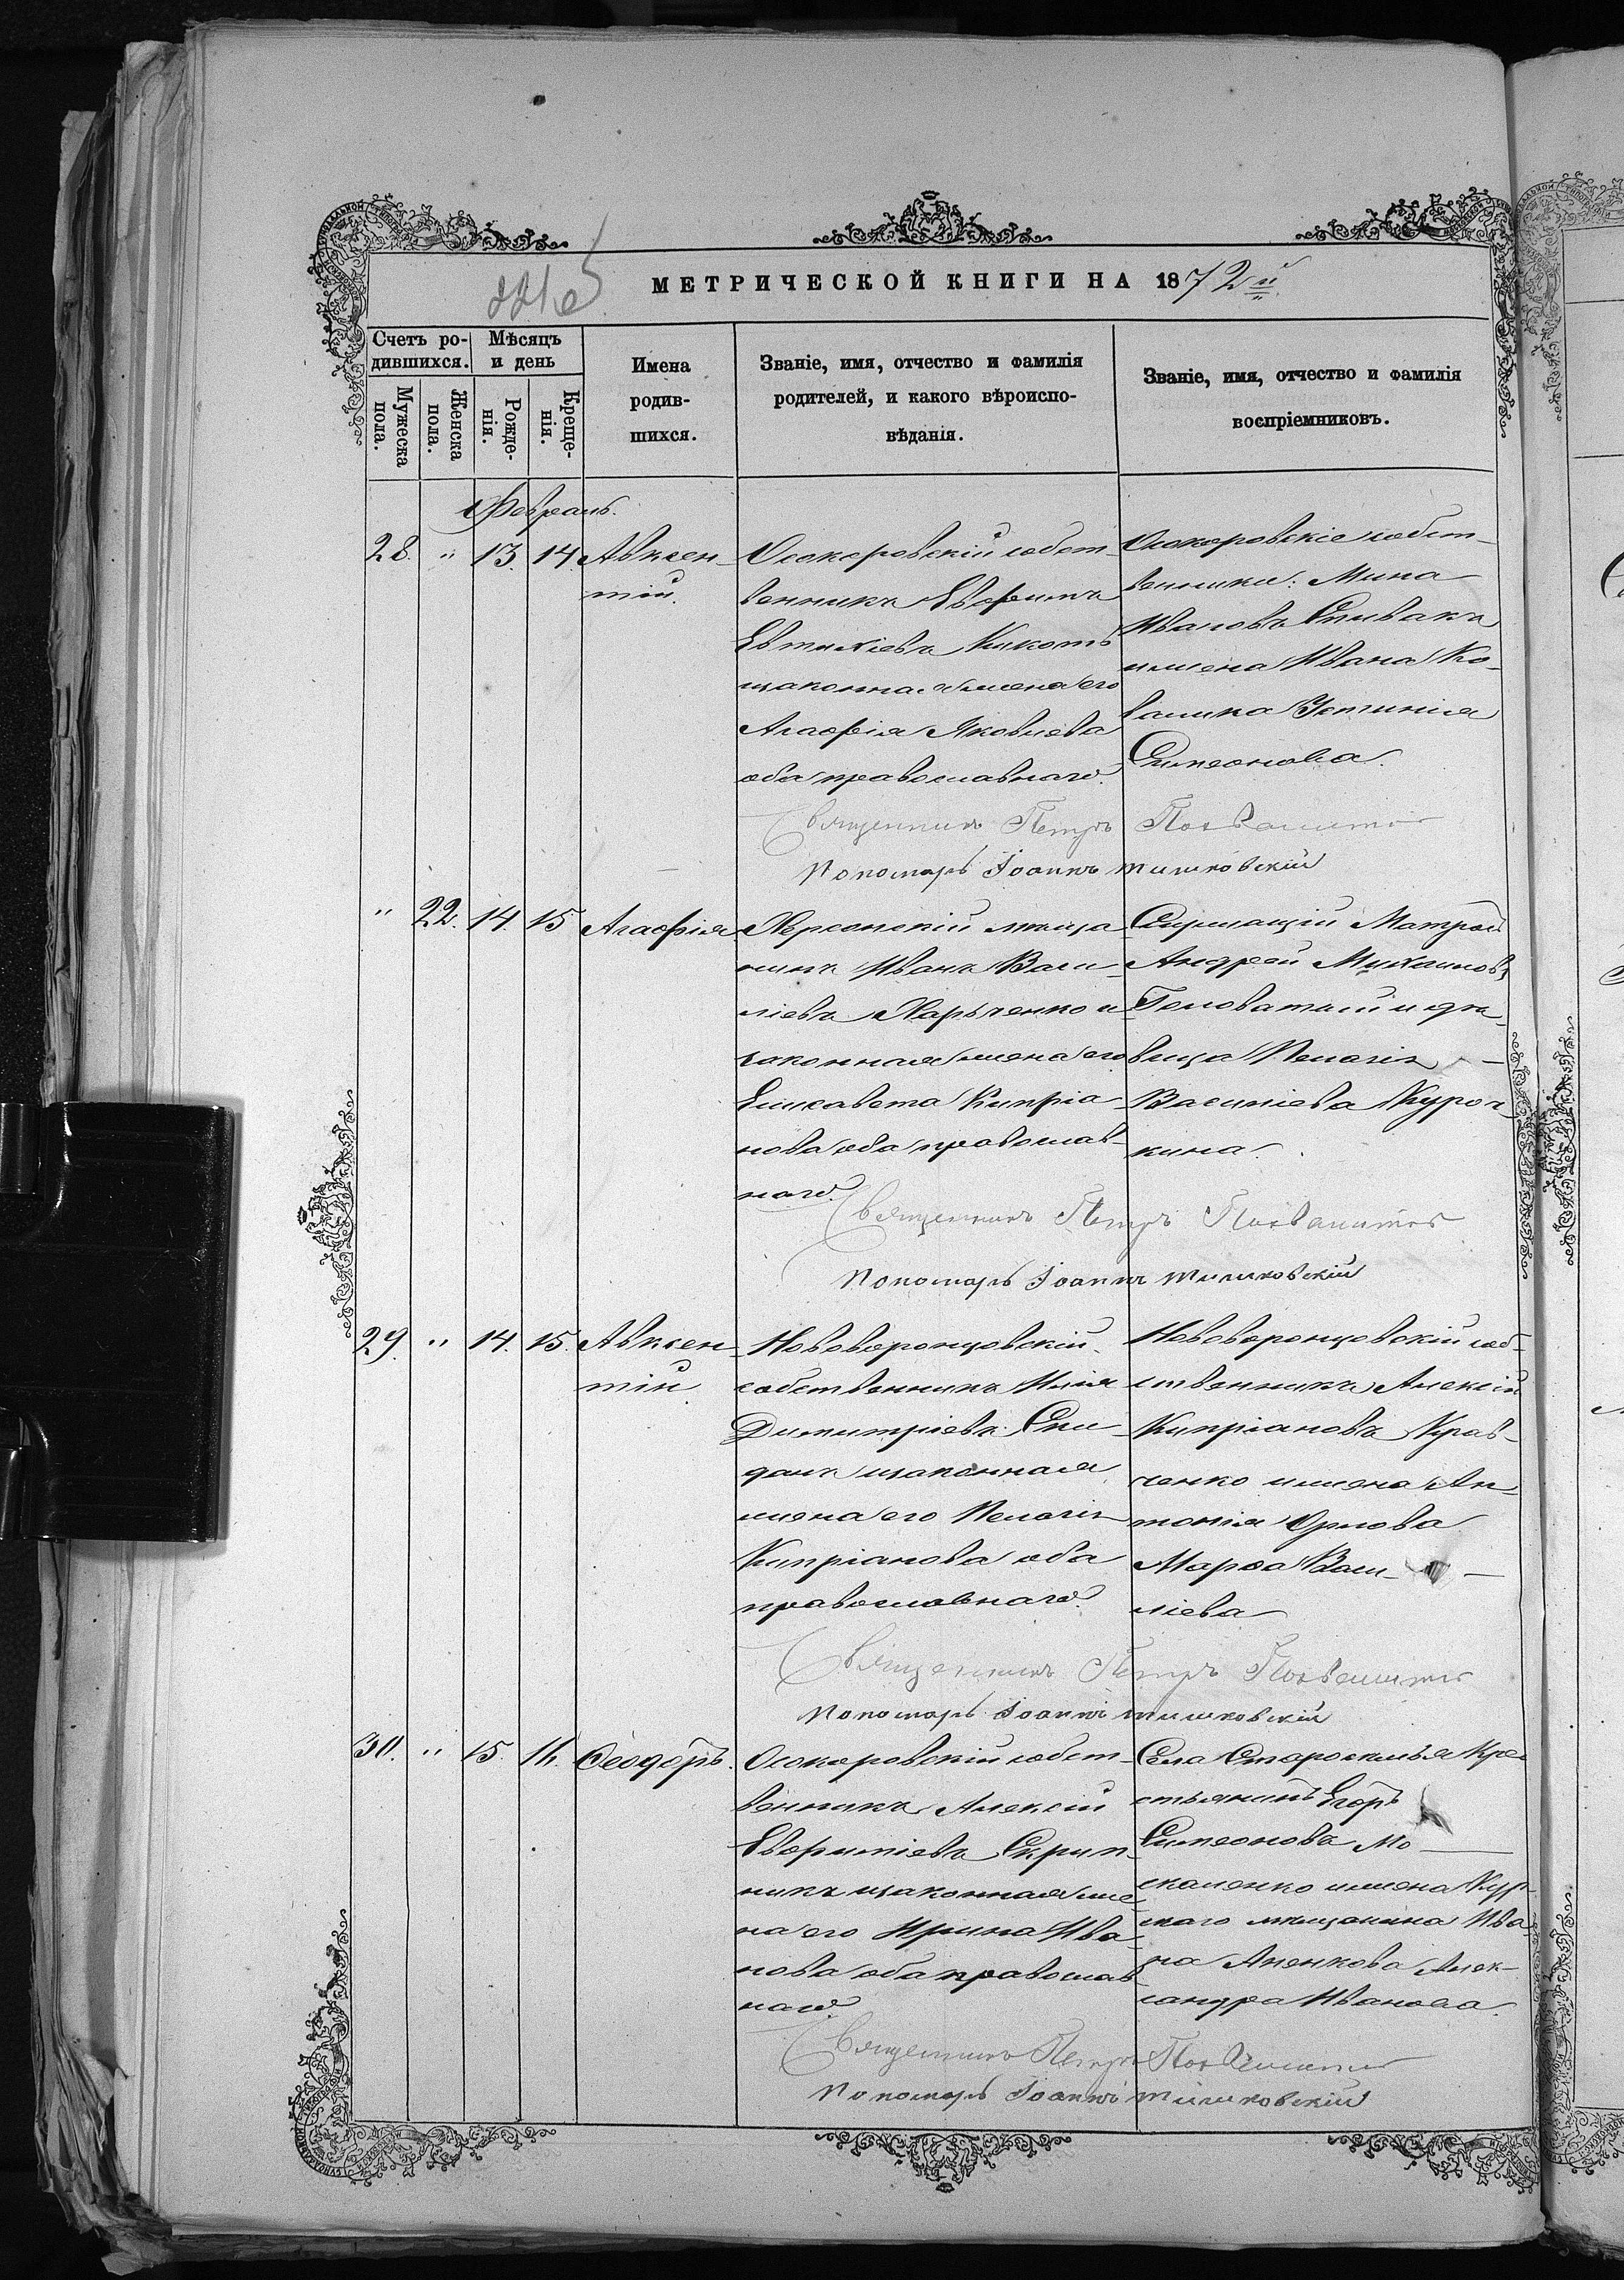 МЕТРИЧЕСКОЙ КНИГИ НА 1872й
Счетъ ро-
дившихся.
Мѣсяцъ
и день
Мужеска
пола.
Женска
пола.
Рожде-
нія.
Креще-
нія.
Имена
родив-
шихся.
Званіе, имя, отчество и фамилія
родителей, и какого вѣроиспо-
вѣданія.
Званіе, имя, отчество и фамилія
воспріемниковъ.
Февраль.
28. " 13. 14. Авксен-
тій.
Осокоровскій собст-
венникъ Евѳимъ
Евтихіевъ Кикоть
и законная жена его
Агаѳія Яковлева
оба православнаго.
Осокоровскіе собст-
венники: Мина
Ивановъ Спивакъ
и жена Ивана Ко-
валика Устинія
Симеонова.
Священникъ Петръ
Пономарь Іоаннъ Тишковскій
" 22. 14. 15 Агаѳія
Херсонскій мѣща-
нинъ Иванъ Васи-
ліевъ Харьченко и
законная жена его
Елисавета Кипріа-
нова оба православ-
наго.
Служащій Матрос
Андрей Михаиловъ
Головатый и дѣ-
вица Пелагія
Василіева Куроч-
кина.
Священникъ Петръ
Пономарь Іоаннъ Тишковскій
29. " 14. 15. Авксен-
тій.
Нововоронцовскій
собственникъ Илія
Димитріевъ
и законная
жена его Пелагія
Кипріанова оба
православнаго.
Нововоронцовскій соб-
ственникъ Алексій
Кипріановъ Крав-
ченко и жена Ан-
тонія Орлова
Марѳа Васи-
ліева
Священникъ Петръ
Пономарь Іоаннъ Тишковскій
30. " 15. 16. Ѳеодоръ.
Осокоровскій собст-
венникъ Алексій
Евѳиміевъ Скрип-
никъ и законная же-
на его Ирина Ива-
нова оба православ-
наго.
Села Староселья кре-
стьянинъ Егоръ
Симеоновъ Мо-
скаленко и жена Кур-
скаго мѣщанина Ива-
на Аненкова Алек-
сандра Иванова.
Священникъ Петръ
Пономарь Іоаннъ Тишковскій